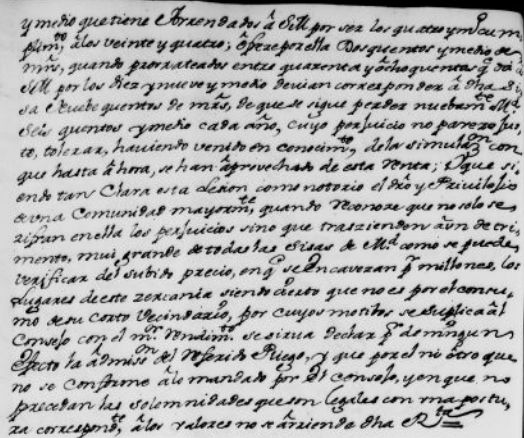 y medio que tiene Arrendados â SM por ser los quatro y m.o cum
plim.to âlos veinte y quatro; ôfreze por ella Dos quentos y medio de
mrs, quando prorrateados entre quarenta y ôcho quentos q.e dâ
SM por los diez y nueve y medio devian corresponder â dha Si
sa Nuebe quentos de mrs, de que se sigue perder nuebam.te SM
Seis quentos y medio cada año, cuyo perjuicio no parezè Jus
to, tolerar, haviendo venido en conocim.to de la simulaz.n con
que hasta âhora, se han âprovechado de esta Renta; Y que si
endo tan Clara esta Lesion como notorio el dro y Privilejio
de una Comunidad mayorm.te quando reconoze que no solo se
zifran en ella los perjuicios sino que traszienden âun de cri
mento, mui grande de todas las Sisas de M.d como se puede
verificar del subido precio, en q.e se Encavezan p.r millones, los
Lugares de este zercania siendo cierto que no es por el consu
mo de su corto Vecindario, por cuyos motibos se suplica âl
Consejo con el m.or Rendim.to se sirva Declar p.r de ningun
Efecto la âdmiss.on del Referido Pliego, y que por el ni ôtro que
no se conforme âlo mandado por el Consejo, y en que no
precedan las solemnidades que son legales con ma postu
ra correspond.te âlos valores no se ârriende dha R.ta